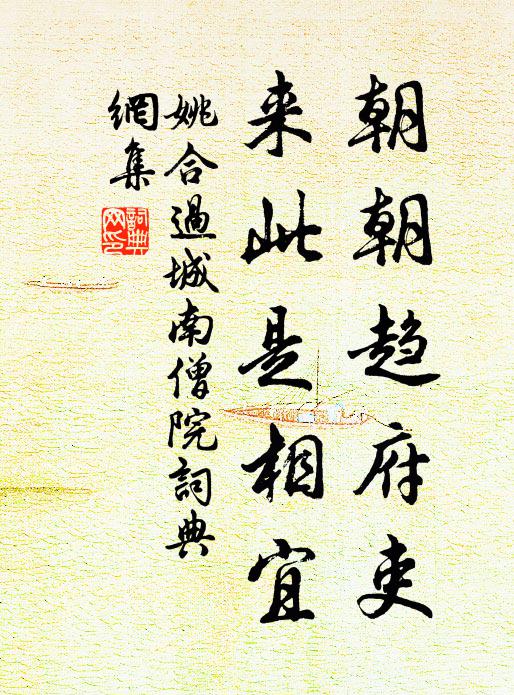 朝朝趋府吏
来此是相宜
姚合過城南僧院詞典
網集
詞典网印